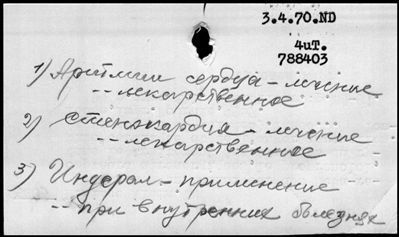 3.4.70.ND
4иТ.
788403
1) Аритмии сердца – лечение
-- лекарственное
2) Стенокардия – лечение
-- лекарственное
3) Индерал – применение
-- при внутренних болезнях